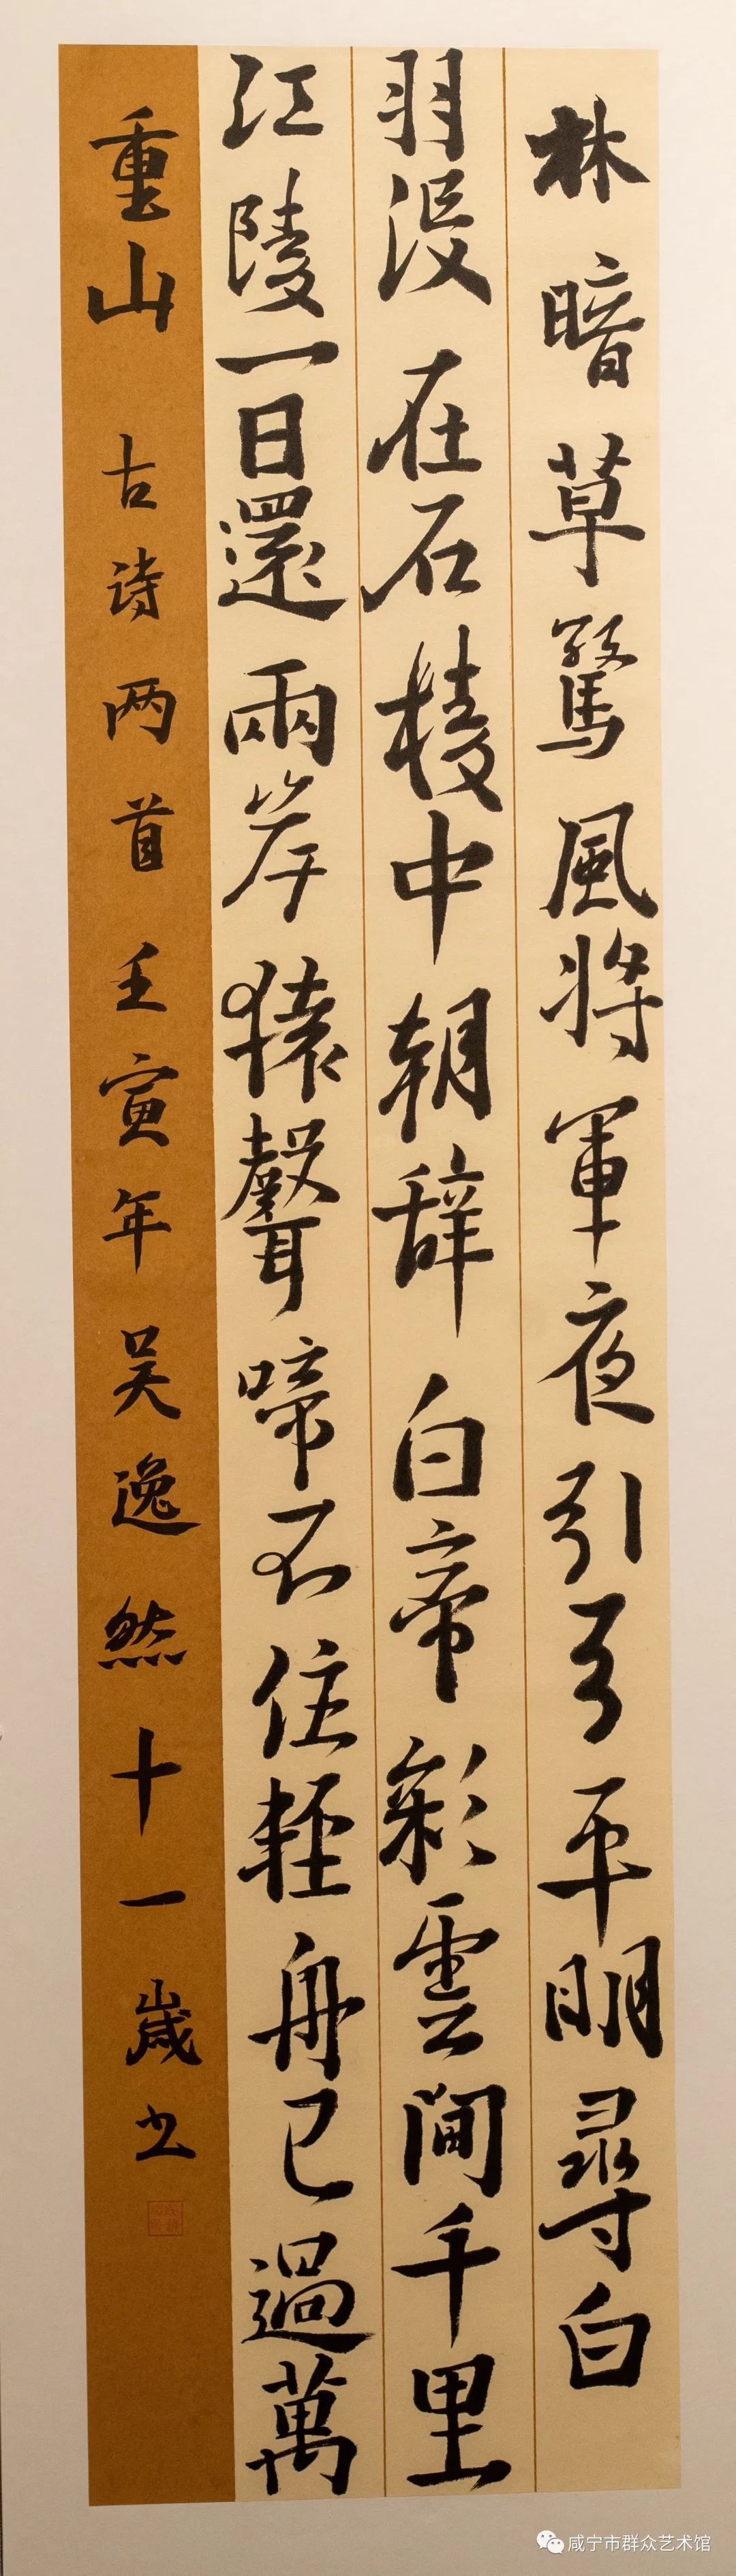 林暗草驚風將軍夜引弓平明尋白
羽没在石棱中朝辞白帝彩雲間千里
江陵一日還兩岸猿聲啼不住輕舟已過萬
重山 古诗两首壬寅年吴逸然十一歲书
咸宁市群众艺术馆